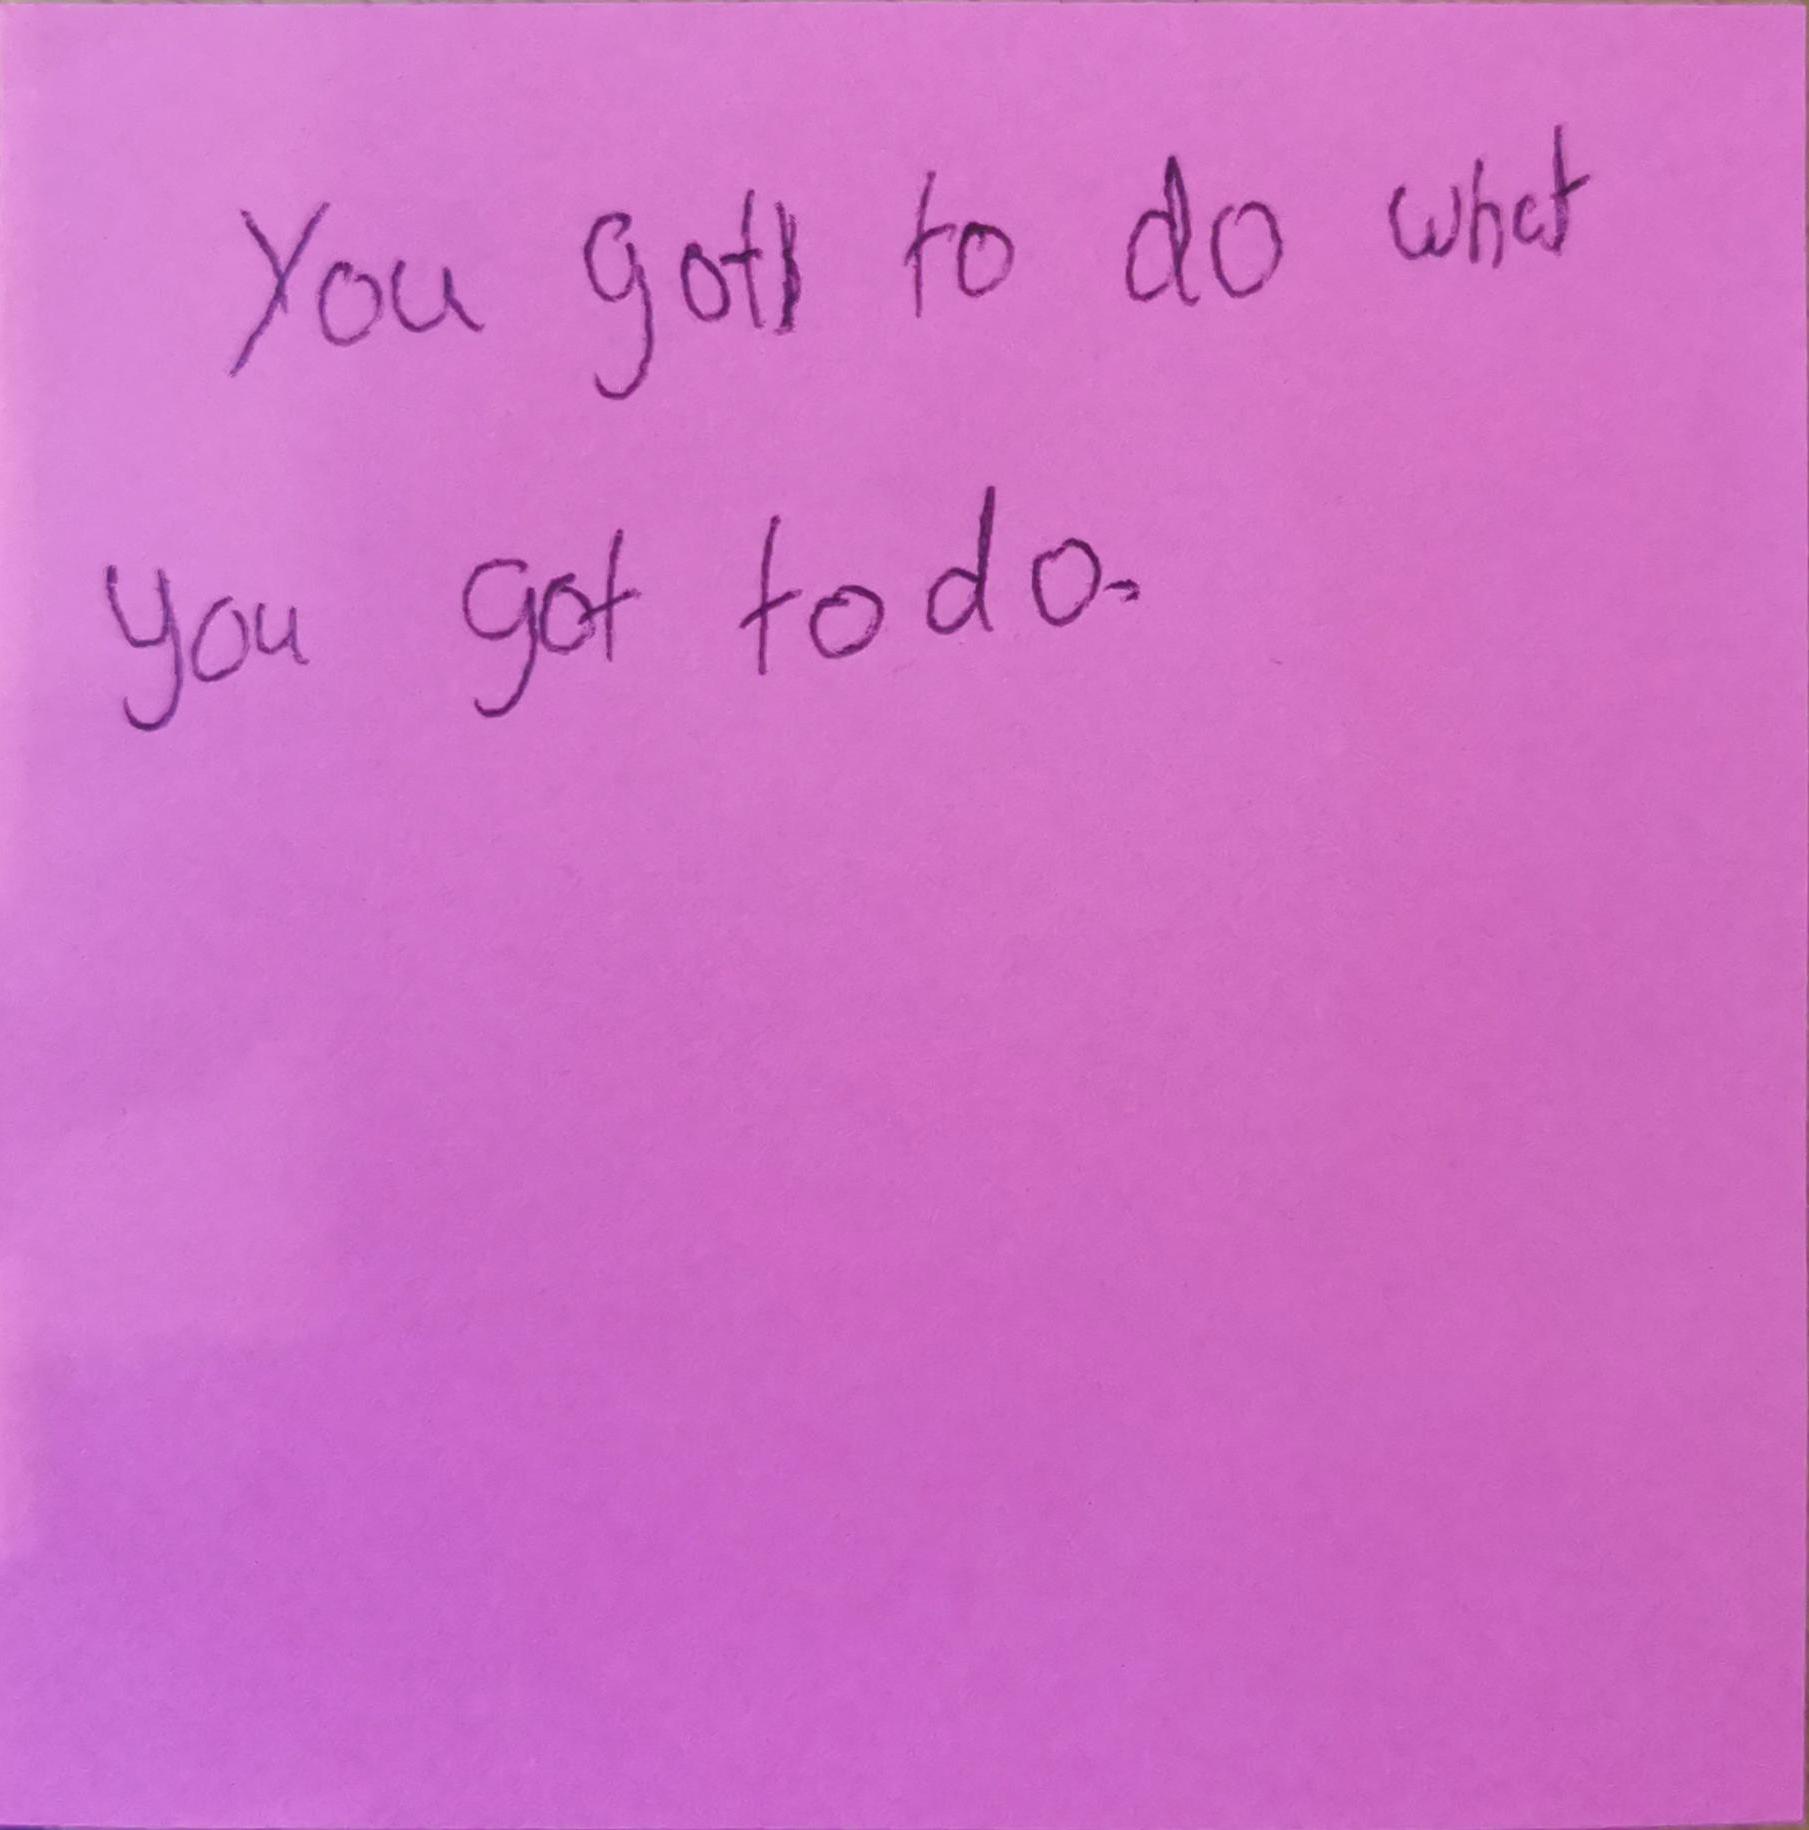 You got to do what
you got to do.